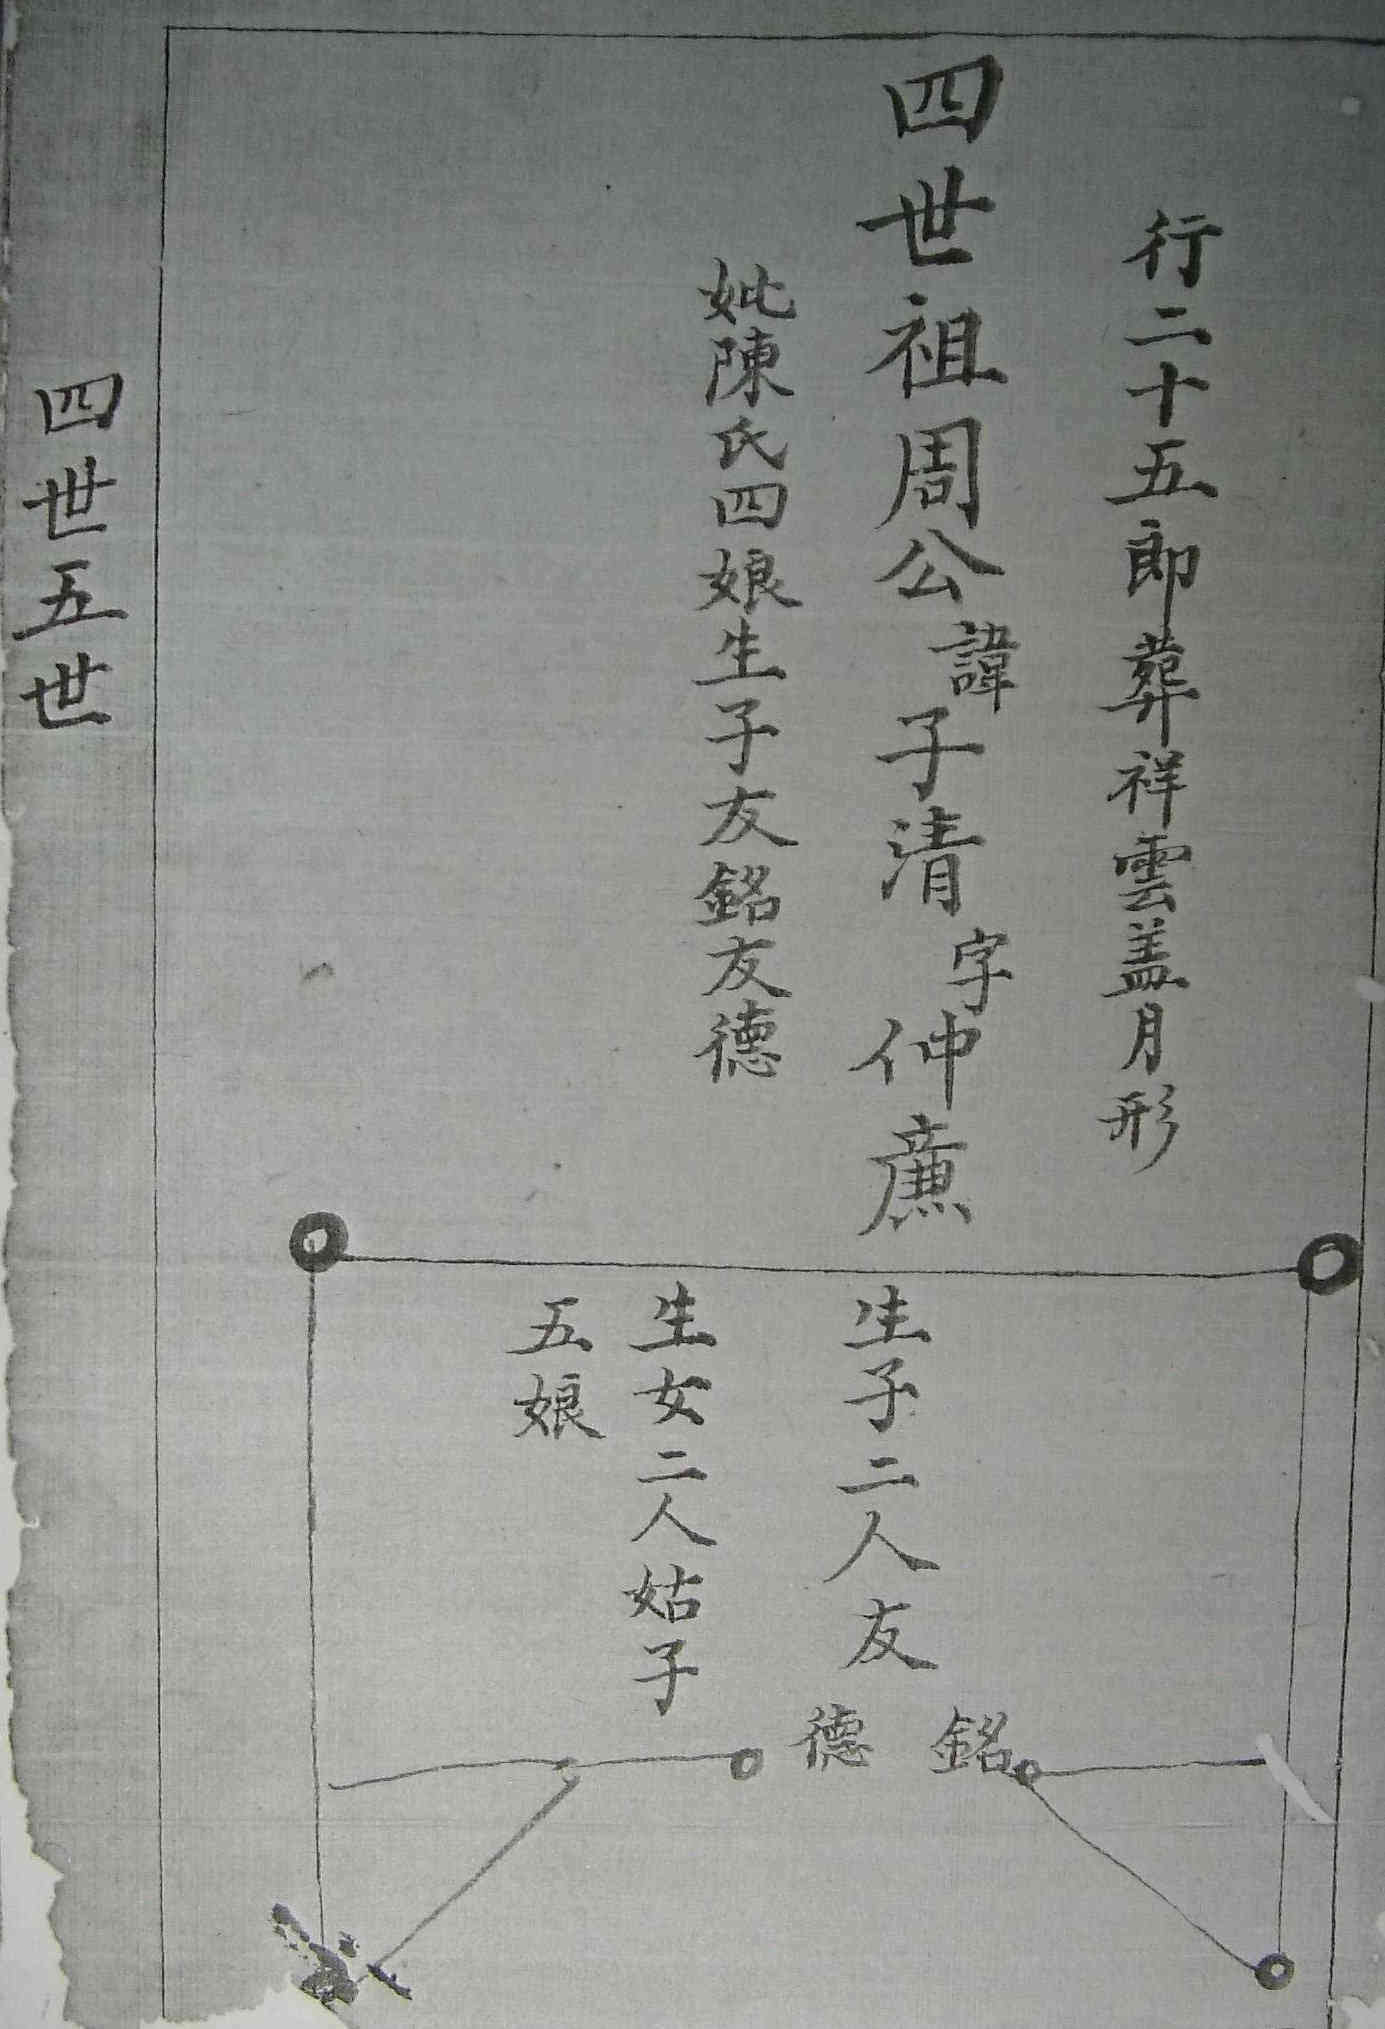 行二十五郎葬祥雲盖月形
四世祖周公諱子清字仲廉
妣陳氏四娘生子友銘友德
生子二人友銘德
生女二人姑子
五娘
四世五世